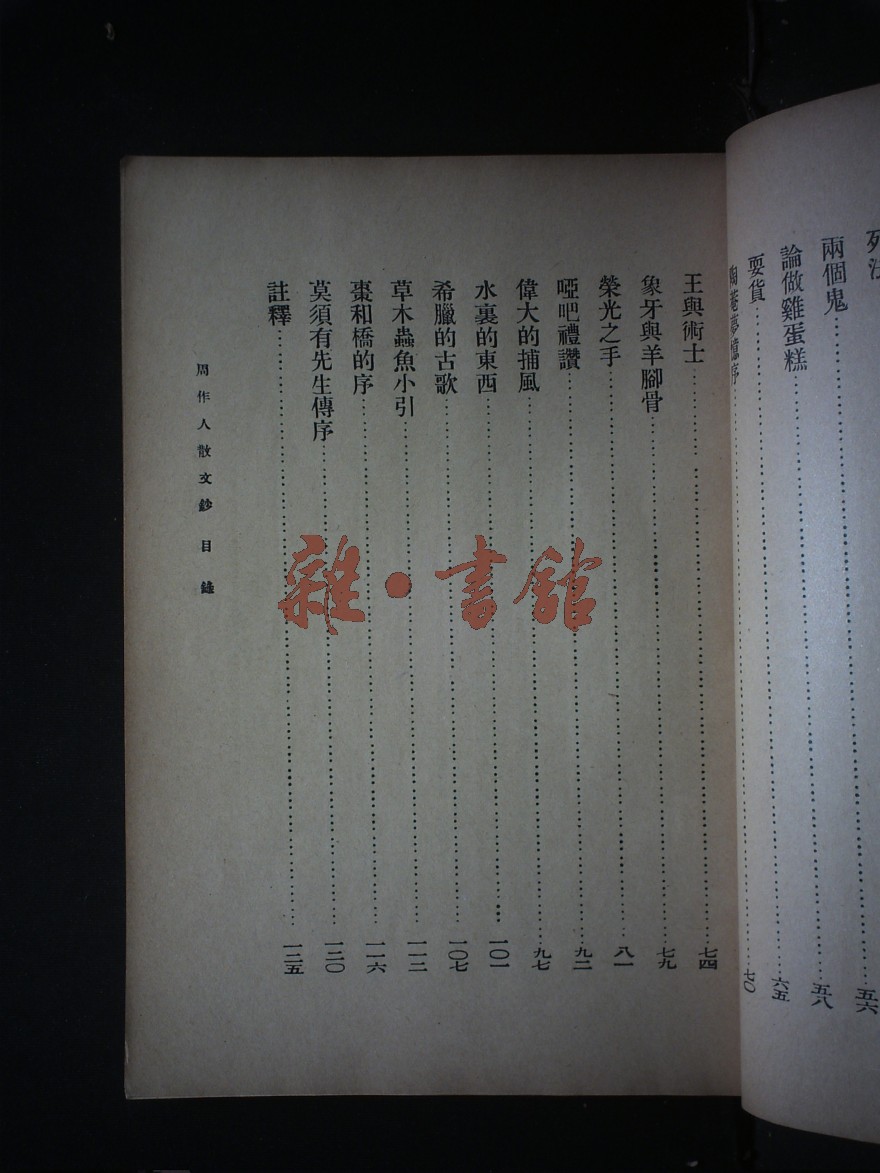 死法……五六
兩個鬼……五八
論做雞蛋糕……六五
耍貨……七〇
陶菴夢憶序……
王與術士……七四
象牙與羊腳骨……七九
榮光之手……八一
啞吧禮讚……九二
偉大的捕風……九七
水裏的東西……一〇一
希臘的古歌……一〇七
草木蟲魚小引……一一二
棗和橋的序……一一六
莫須有先生傳序……一二〇
註釋……一二五
周作人散文鈔 目錄
雜·書館